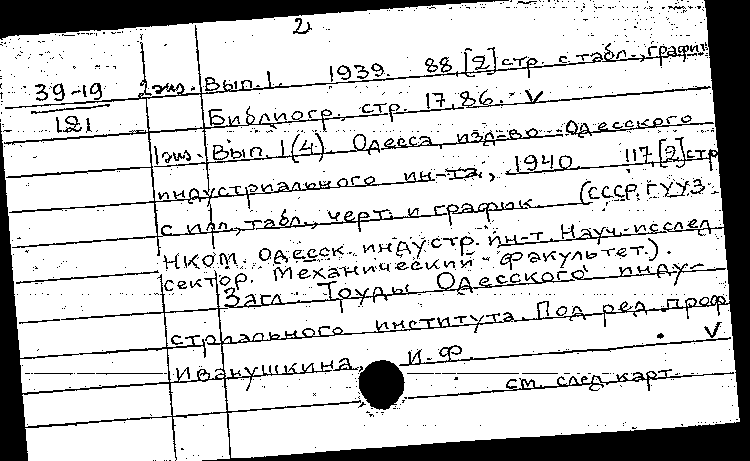 2
39-19 2 экз. Вып. 1. 1939. 88,[2] стр. с табл., график
121 Библиогр., стр. 17,86. V
1 экз. Вып. 1(4). Одесса, изд-во Одесского
индустриального ин-та, 1940. 117,[2] стр
с илл., табл., черт. и график. (СССР. ГУУЗ
НКОМ. Одесск. индустр. ин-т. Науч.-исслед
сектор. Механический факультет).
Загл.: Труды Одесского инду-
стриального института. Под ред. проф
Иванушкина, И.Ф. V
см. след. карт.